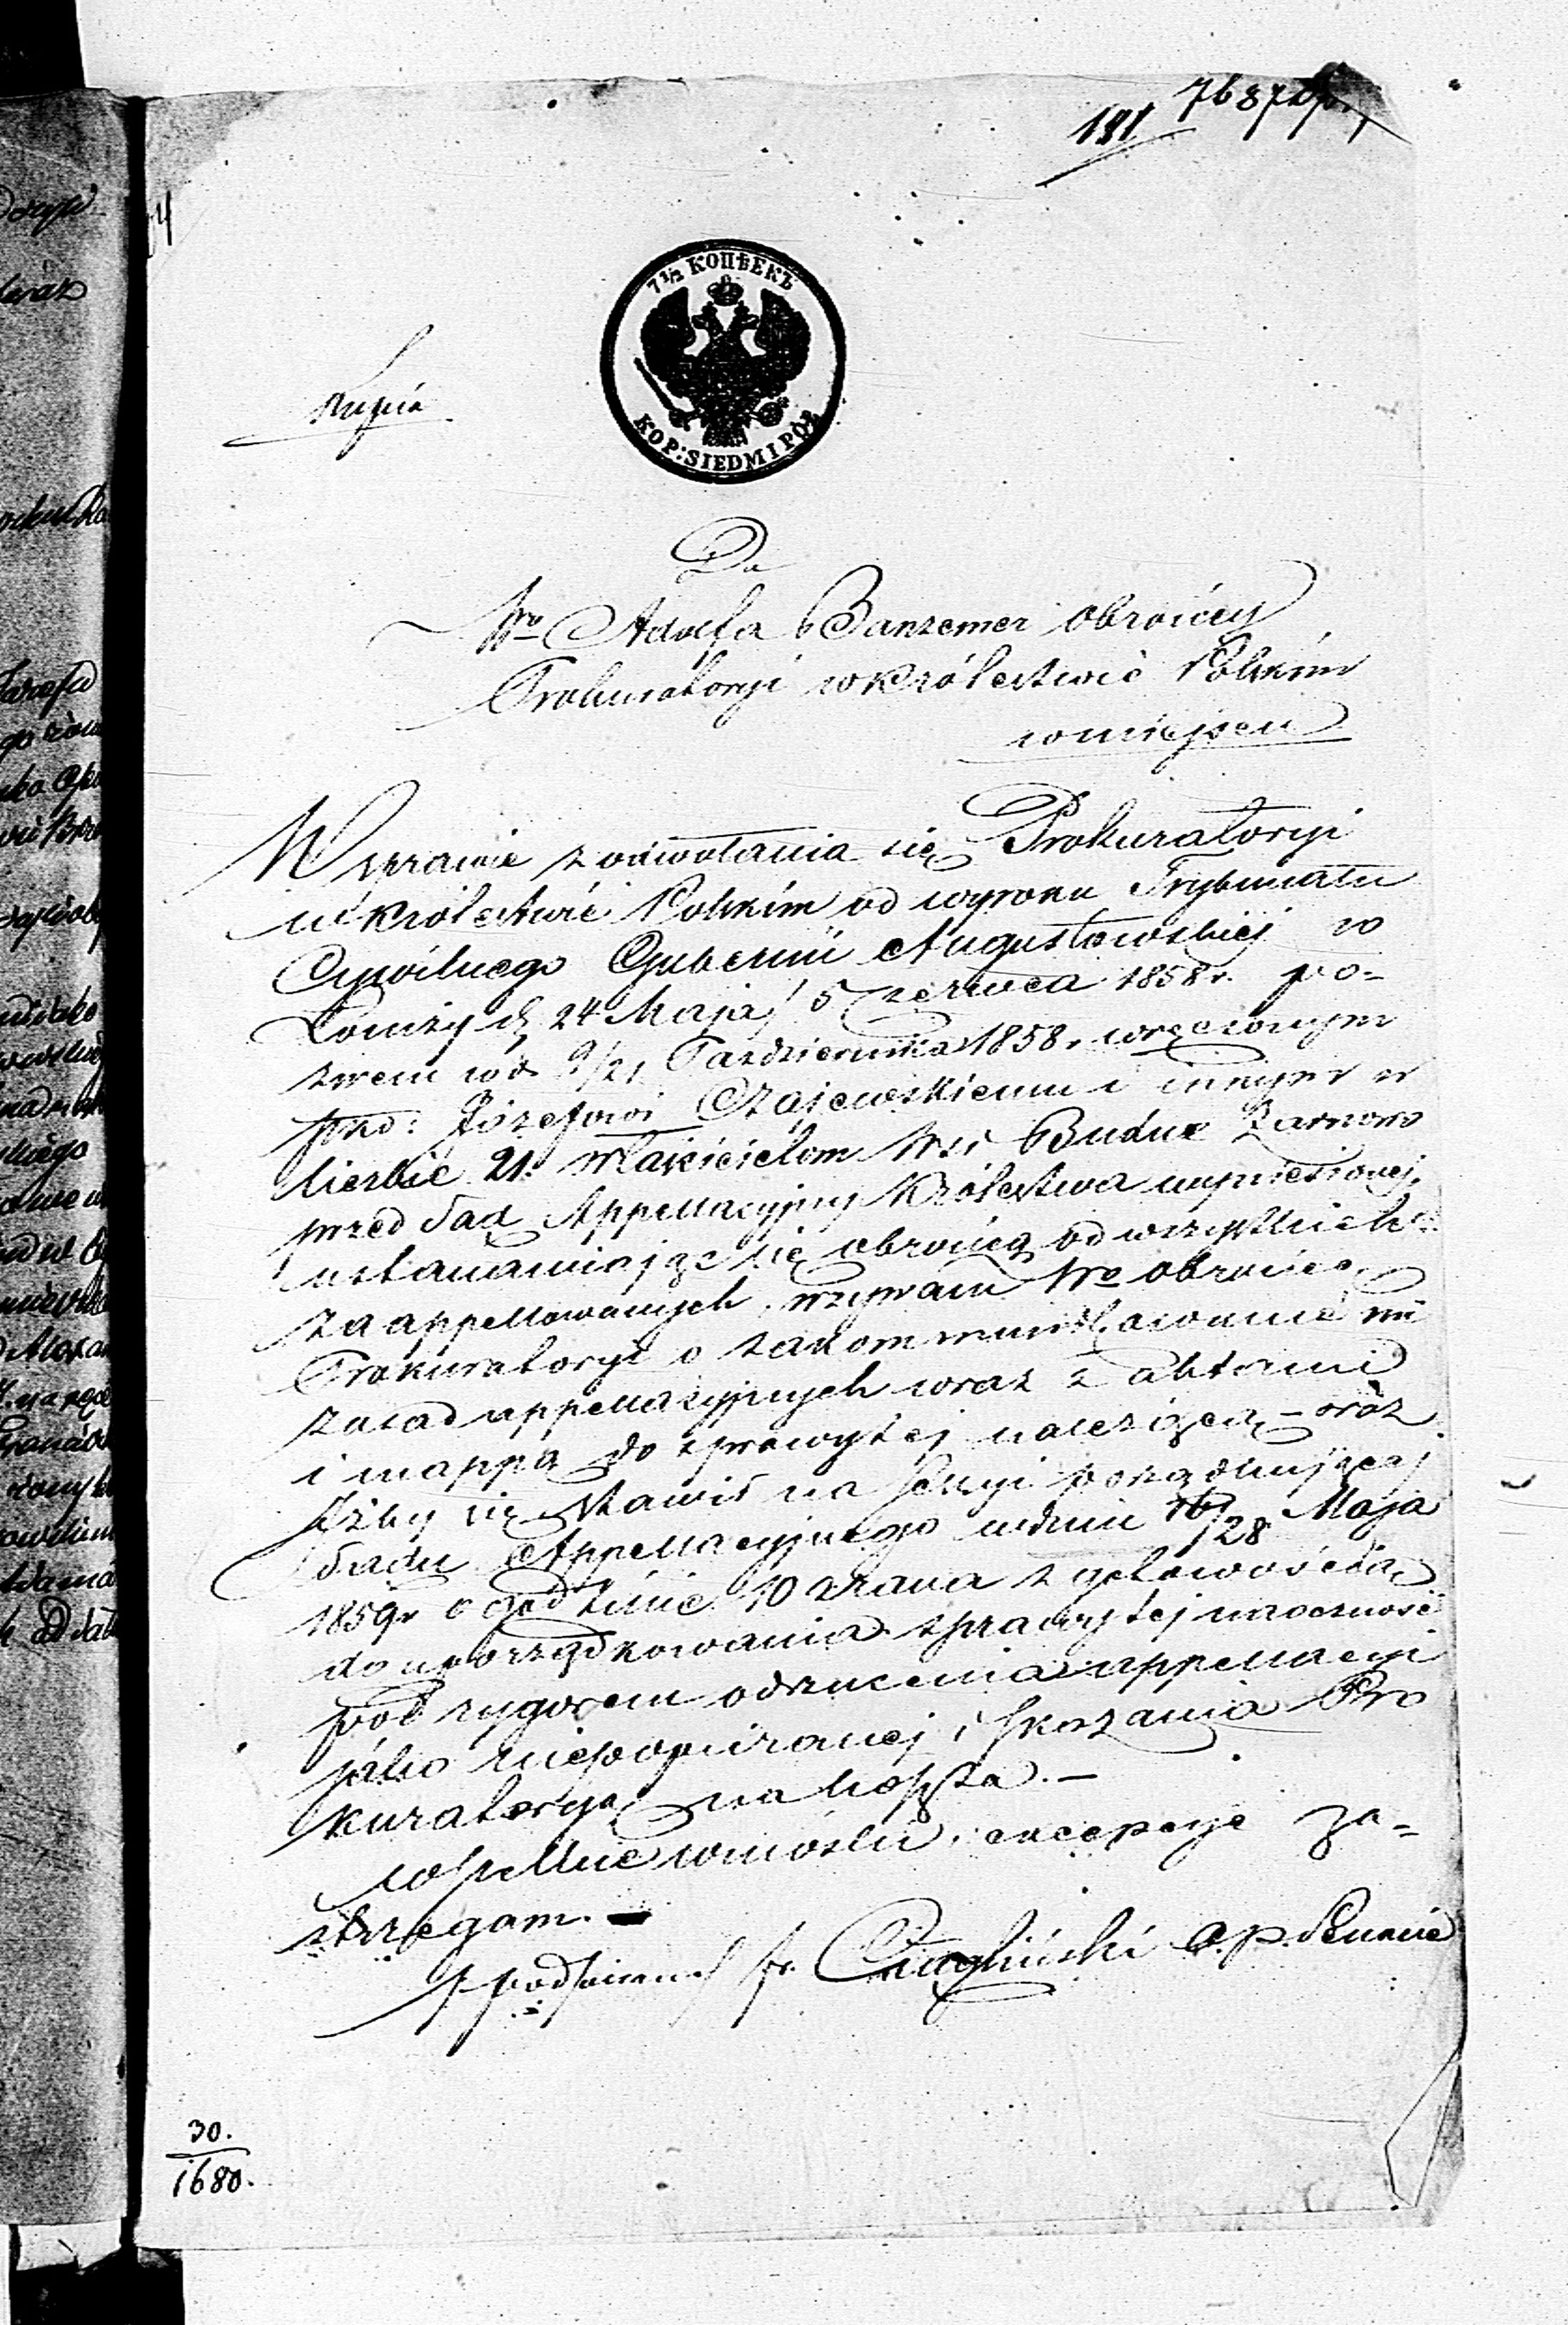 181
7½ КОПѢЕКЪ
KOP: SIEDM I PÓŁ
Kopia
Do
Wo Adolfa Banzemer obrońcy
Prokuratoryi w Królestwie Polskim
w miejscu
W sprawie z odwołania się Prokuratoryi
w Królestwie Polskim od wyroku Trybunału
Cywilnego Gubernii Augustowskiej w
Łomży d 24 Maja/5 Czerwca 1858 r. po-
zwem w d 9/21 Październ 1858 r wręczonym
Józefowi Czajewskiemu i innym w
liczbie 21. właścicielom Wsi Budne Żarnowo
przed Sąd Appellacyjny Królestwa wyniesionej,
ustanawiając się obrońcą od wszystkich
zaappellowanych, wzywam Wo obrońcę
Prokuratoryi o zakommunikowanie mi
zasad appellacyjnych wraz z aktami
i mappą do sprawy tej należącą – oraz
Iżby się stawił na Sessyi porządkującej
Sądu Appellacyjnego w dniu 16/28 Maja
1859 r o godzinie 10 z rana z gotowością
do uporządkowania sprawy tej
pod rygorem odrzucenia appellacyi
jako niepopieranej i skazania Pro
kuratoryą na koszta. –
wszelkie wnioski i excepcye za-
strzegam. –
podpisany A. P. Senacie
30.
1680.